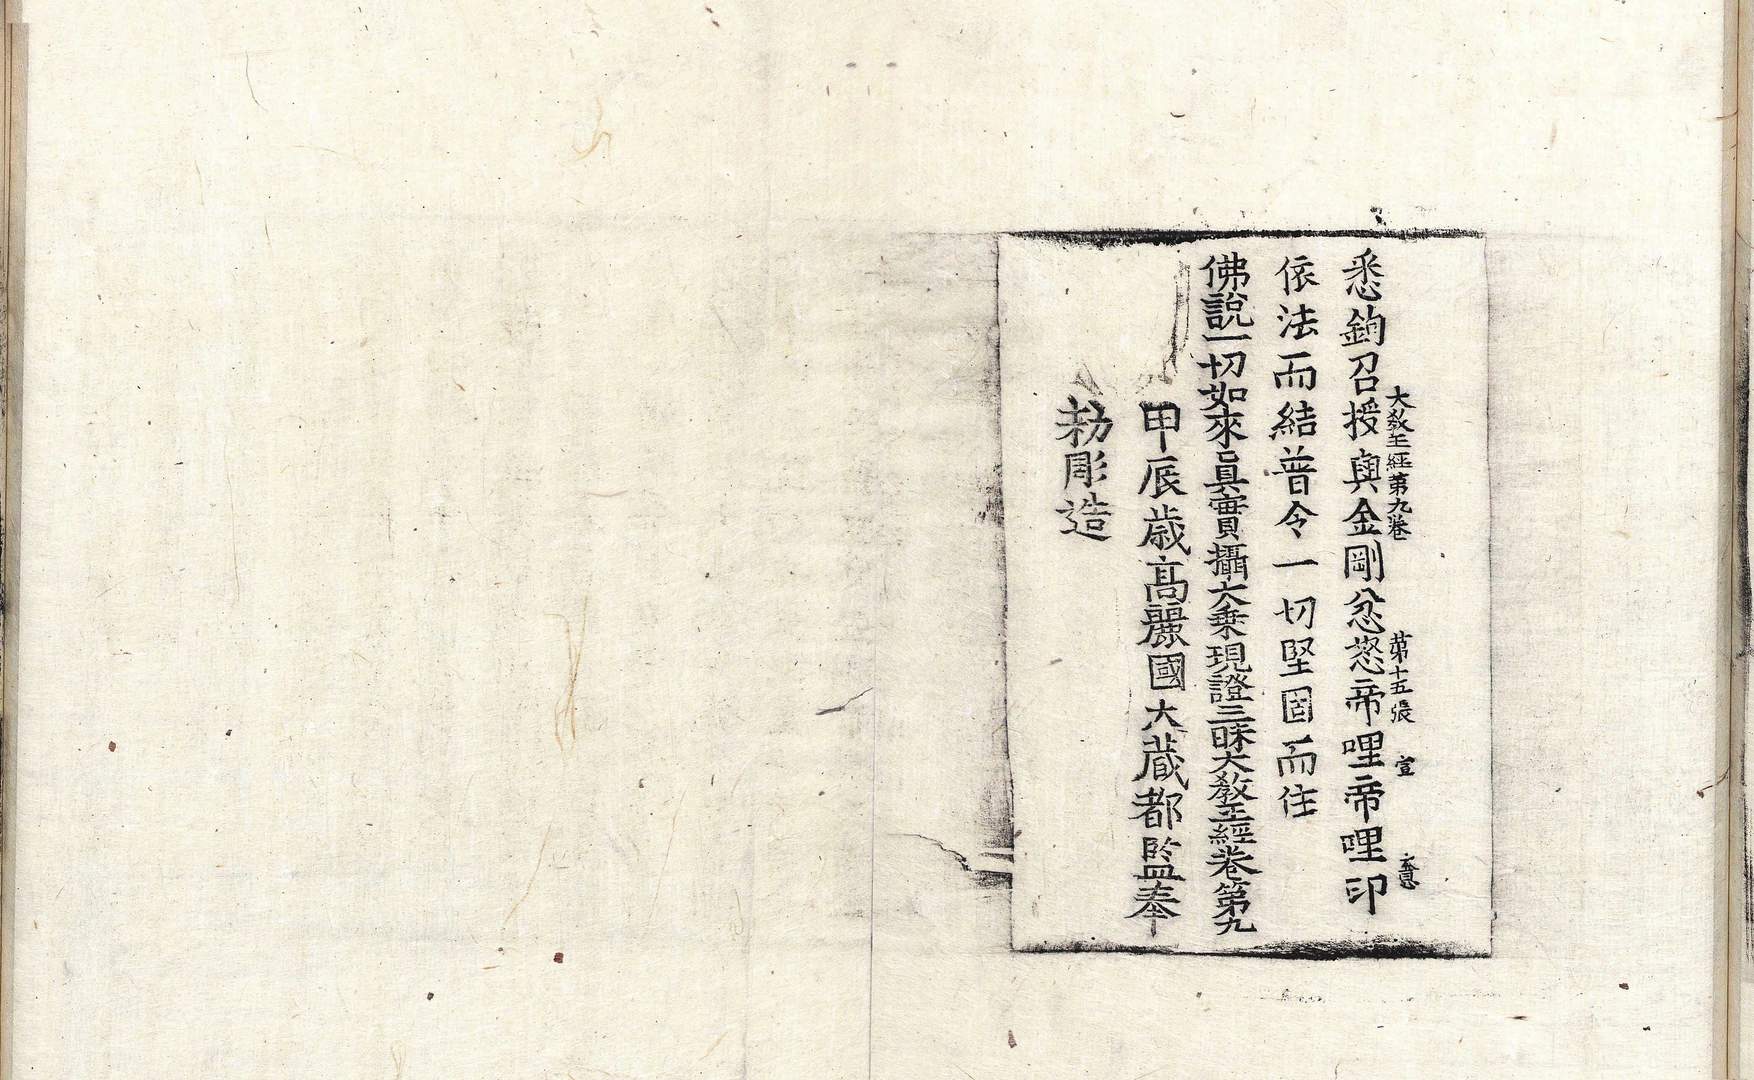 大教王經第九卷 第十五張 宣
悉鉤召授與金剛忿怒帝哩帝哩印
依法而結普令一切堅固而住
佛說一切如來眞實攝大乗現證三昧大教王經卷第九
甲辰歳髙麗國大蔵都監奉
勑彫造